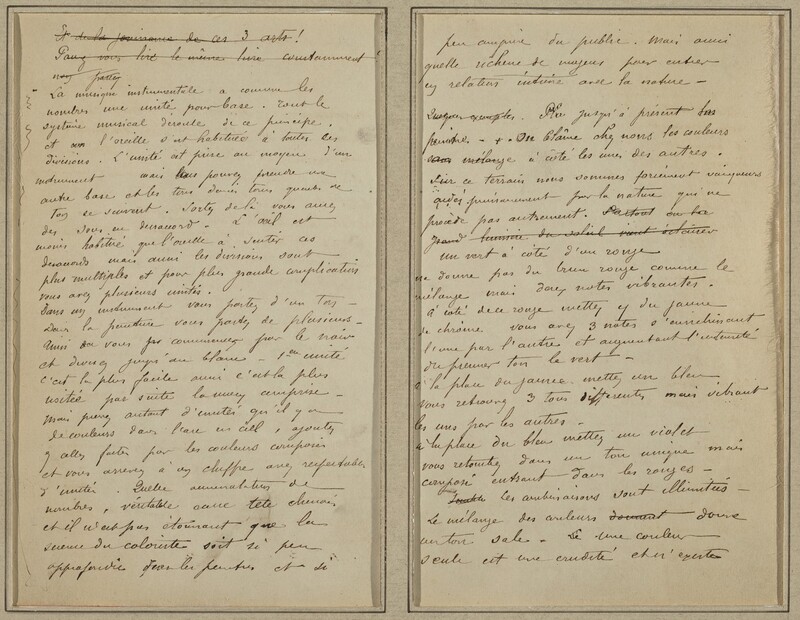 Et de la jouissance de ces 3 arts!
vous lire le même livre constamment!
La musique instrumentale a comme les
nombres une unité pour base. Tout le
système musical découle de ce principe.
et l'oreille s'est habituée à toutes ces
divisions. L'unité est prise au moyen d'un
instrument mais vous pouvez prendre une
autre base et les tons demi tons quarts de
ton se suivent. Sortez de là vous aurez
des sons en désaccord. L'œil est
moins habitué que l'oreille à sentir ces
désaccords mais aussi les divisions sont
plus multiples et pour plus grande complication
vous avez plusieurs unités.
Dans un instrument vous partez d'un ton —
dans la peinture vous partez de plusieurs —
Ainsi vous commencez par le noir
et divisez jusqu'au blanc — 1ère unité
c'est la plus facile aussi c'est la plus
usitée par suite la mieux comprise —
Mais prenez autant d'unités qu'il y a
de couleurs dans l'arc en ciel, ajoutez
y celles faites par les couleurs composées
et vous arrivez à un chiffre assez respectable
d'unités. Quelle accumulation de
nombres, véritable casse tête chinois
et il n'est pas étonnant que la
science du coloriste soit si peu
approfondie par les peintres et si
peu comprise du public. Mais aussi
quelle richesse de moyens pour entrer
en relation intime avec la nature —
jusqu'à présent
On blâme chez nous les couleurs
sans mélange à côté les unes des autres.
Sur ce terrain nous sommes forcément vainqueurs
aidés puissamment par la nature qui ne
procède pas autrement.
lumière du soleil vient éclairer
un vert à côté d'un rouge
ne donne pas du brun rouge comme le
mélange mais deux notes vibrantes.
à côté de ce rouge mettez du jaune
de chrome vous avez 3 notes s'enrichissant
l'une par l'autre et augmentant l'intensité
du premier ton le vert —
à la place du jaune mettez un bleu
vous retrouvez 3 tons différents mais vibrant
les uns par les autres —
à la place du bleu mettez un violet
vous retombez dans un ton unique mais
composé entrant dans les rouges —
les combinaisons sont illimitées —
Le mélange des couleurs donnant donne
un ton sale. — une couleur
seule est une crudité et n'existe